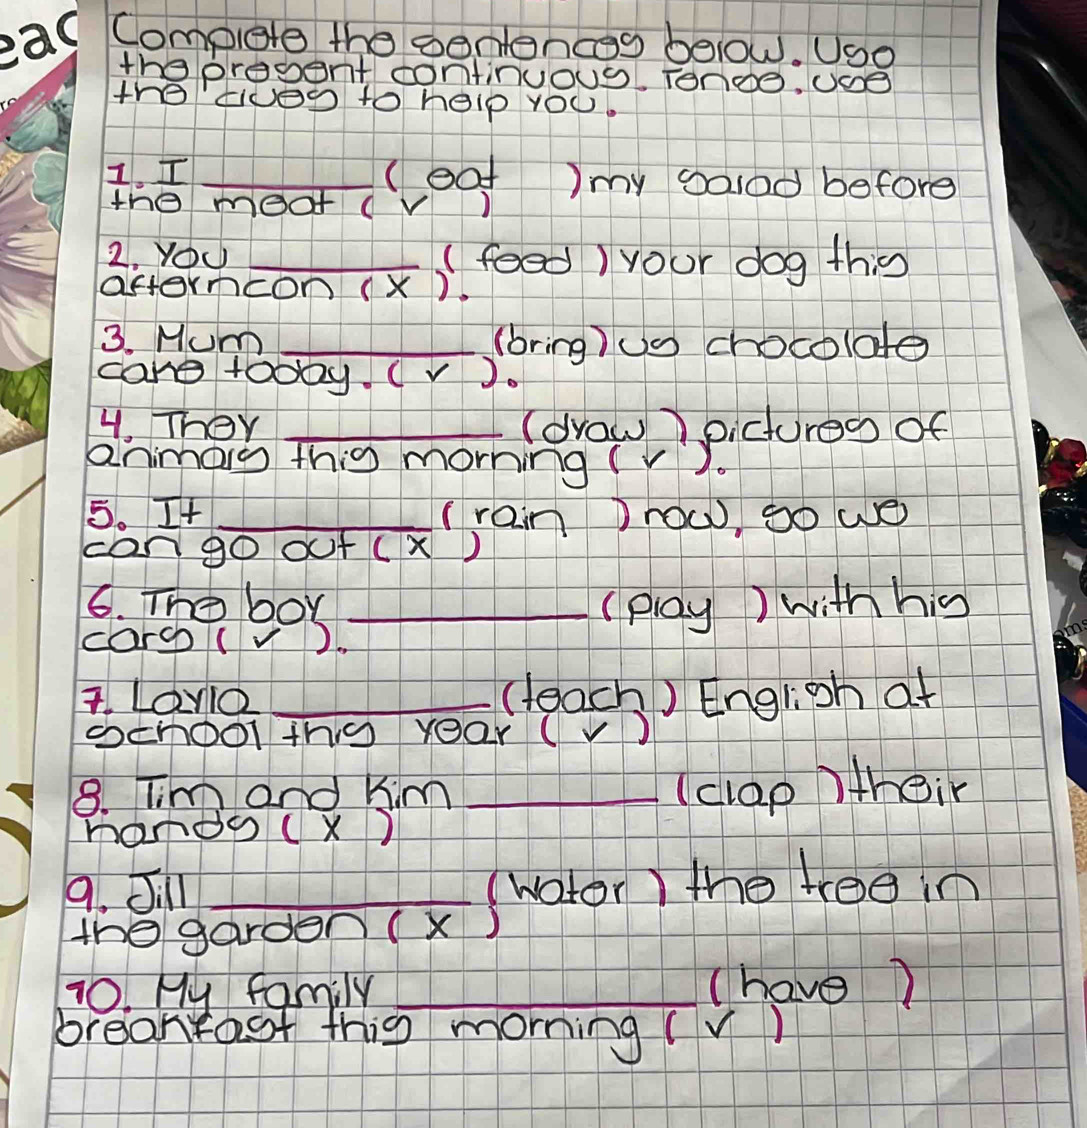 eac
Complete the sentences below. Use
the present continuous. Tense. Use
the clues to help you.
1. I ________ ( eat ) my salad before
the meat ( ✓ )
2. You ________ ( feed ) your dog this
afternoon ( x ).
3. Mum ________ (bring) us chocolate
cake today. ( ✓ ).
4. They ________ (draw) pictures of
animals this morning ( ✓ ).
5. It ________ ( rain ) now, so we
can go out ( x )
6. The boy ________ ( play ) with his
cars ( ✓ ).
7. Layla ________ (teach) English at
school this year ( ✓ )
8. Tim and Kim ________ (clap ) their
hands ( x )
9. Jill ________ (water) the tree in
the garden ( x )
10. My family ________ ( have )
breakfast this morning ( ✓ )